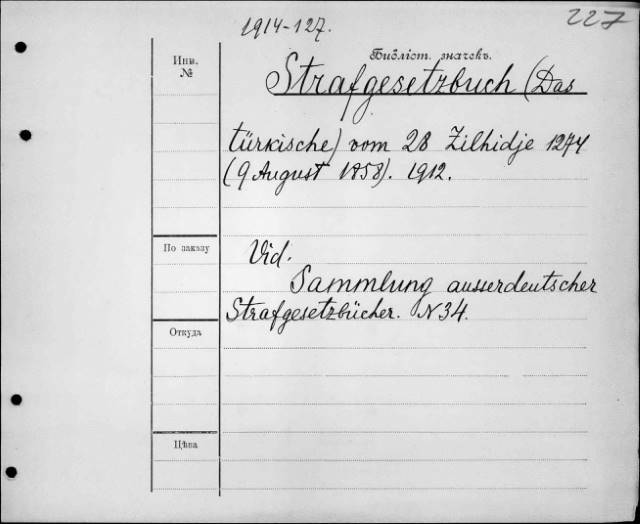 1914-127.
227
Библіот. значекъ.
Инв.
№
Strafgesetzbuch (Das
türkische) vom 28 Zilhidje 1274
(9 August 1858). 1912.
По заказу
Vid.
Sammlung ausserdeutscher
Strafgesetzbücher. N 34.
Откуда
Цѣна